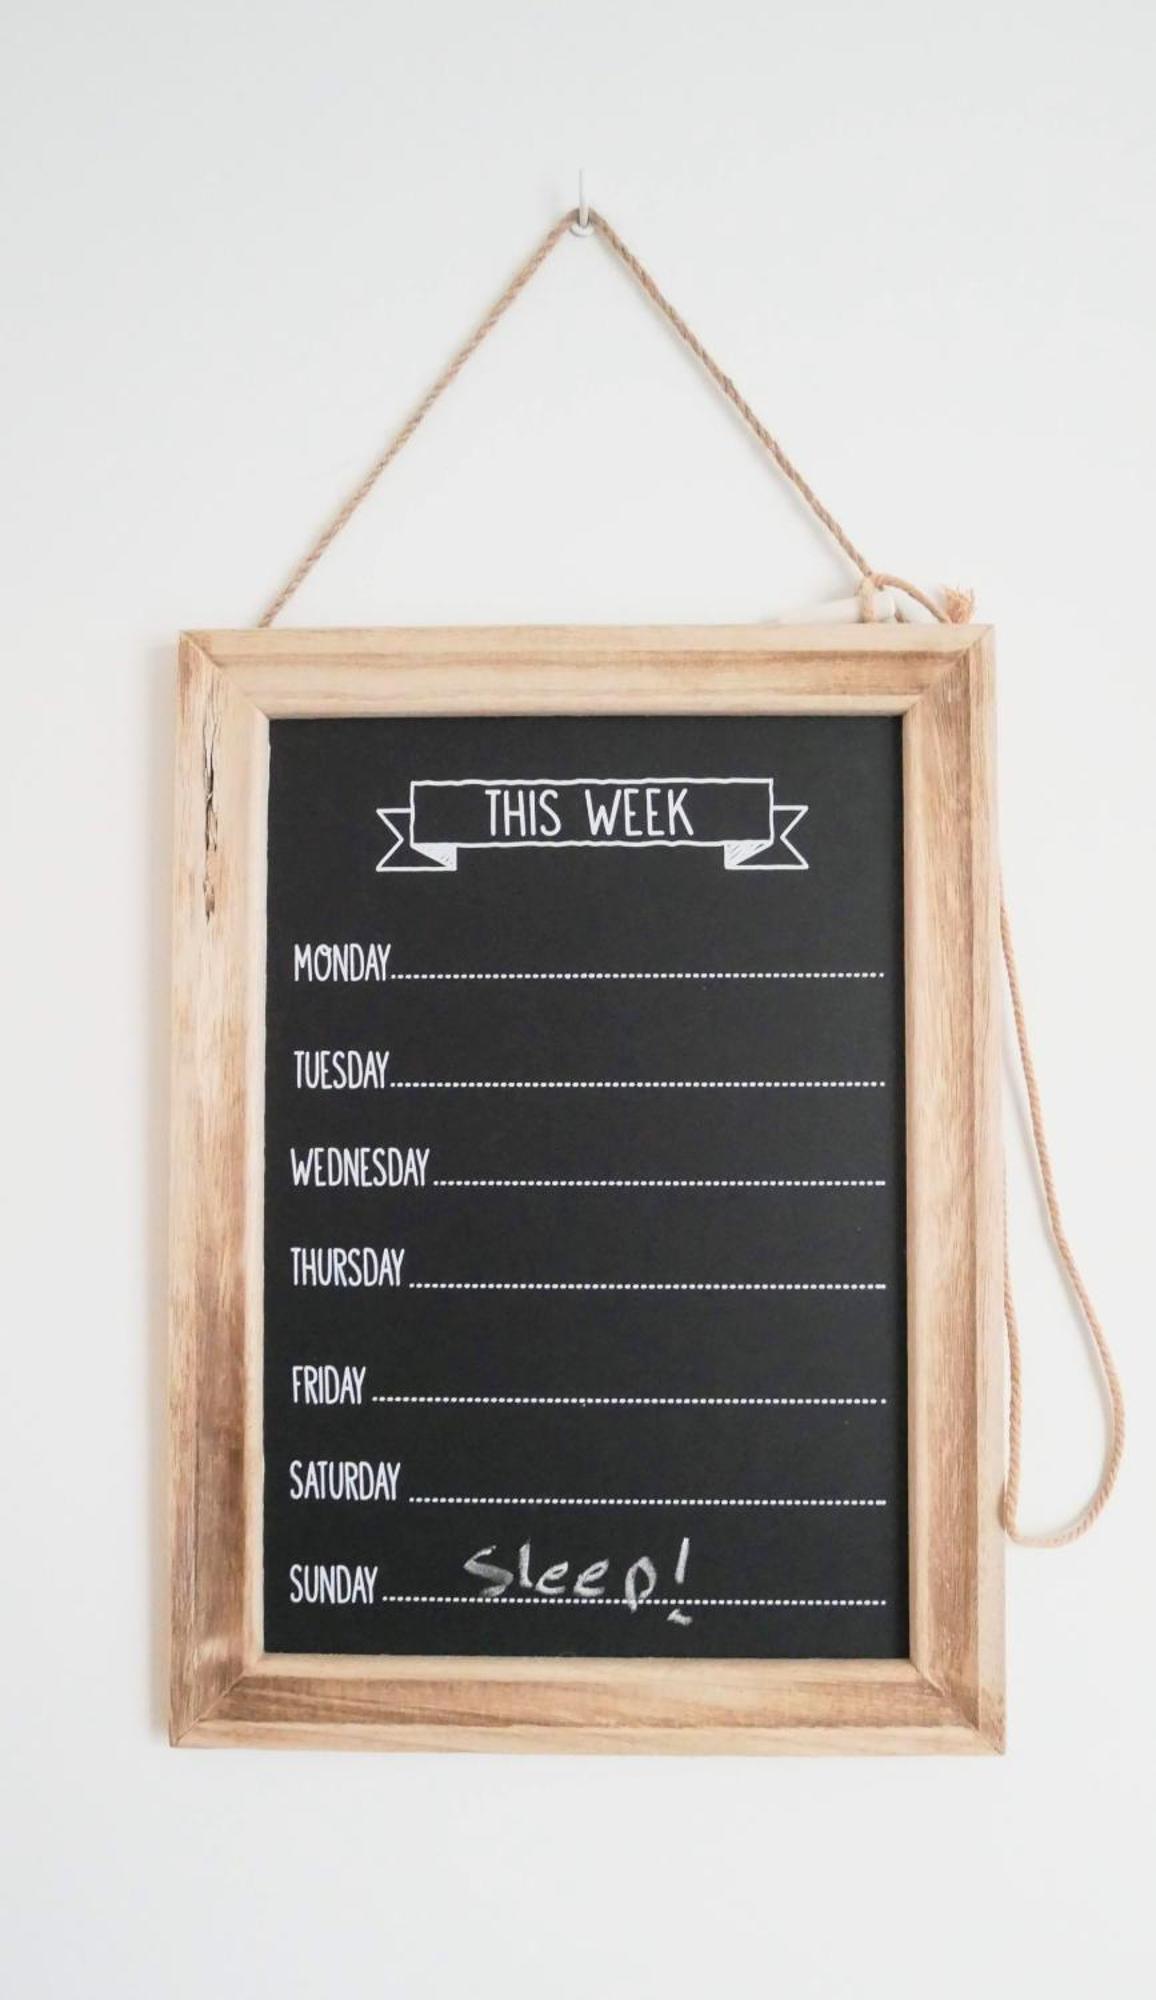 THIS WEEK
MONDAY
TUESDAY
WEDNESDAY
THURSDAY
FRIDAY
SATURDAY
SUNDAY Sleep!